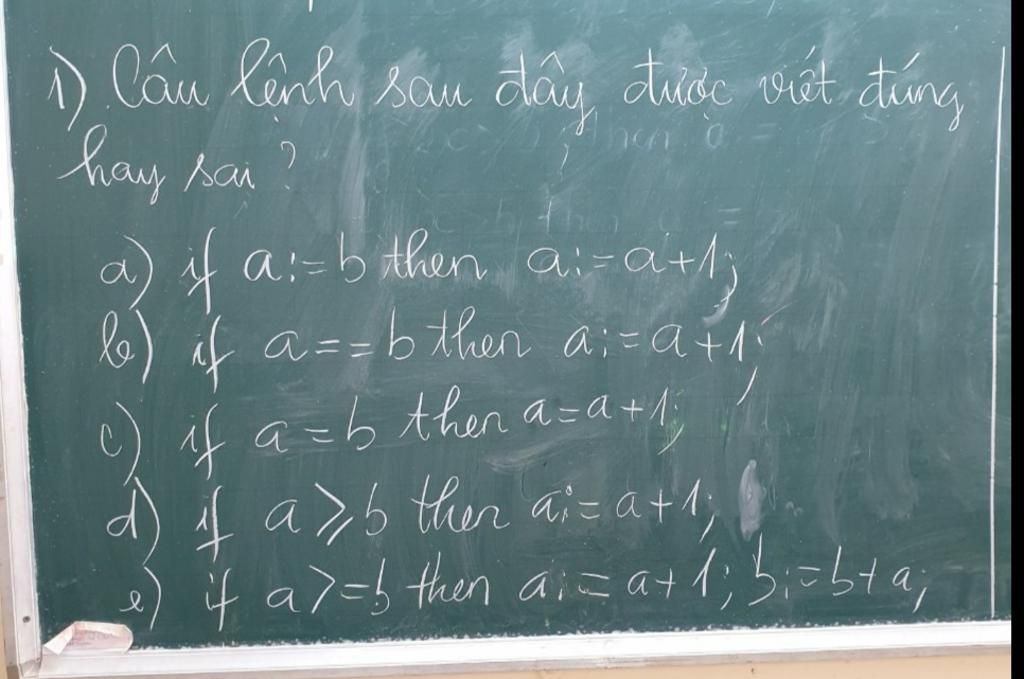 1) Câu lệnh sau đây được viết đúng
hay sai?
a) if a:=b then a:=a+1;
b) if a==b then a:=a+1;
c) if a=b then a=a+1;
d) if a⩾b then a:=a+1;
e) if a>=b then a:=a+1; b:=b+a;